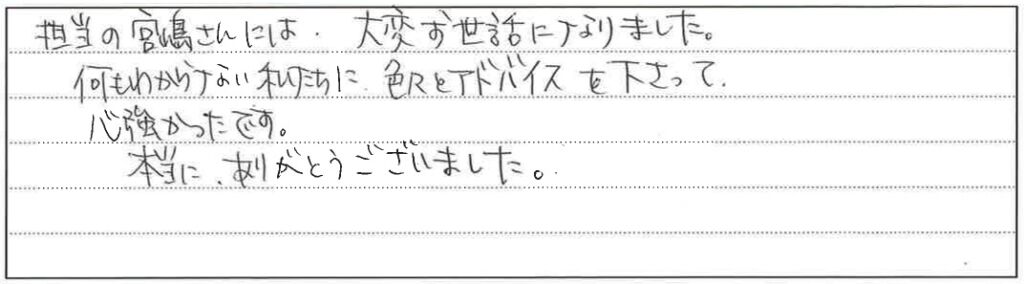 担当の宮嶋さんには、大変お世話になりました。
何もわからない私たちに、色々とアドバイスを下さって、
心強かったです。
本当に、ありがとうございました。